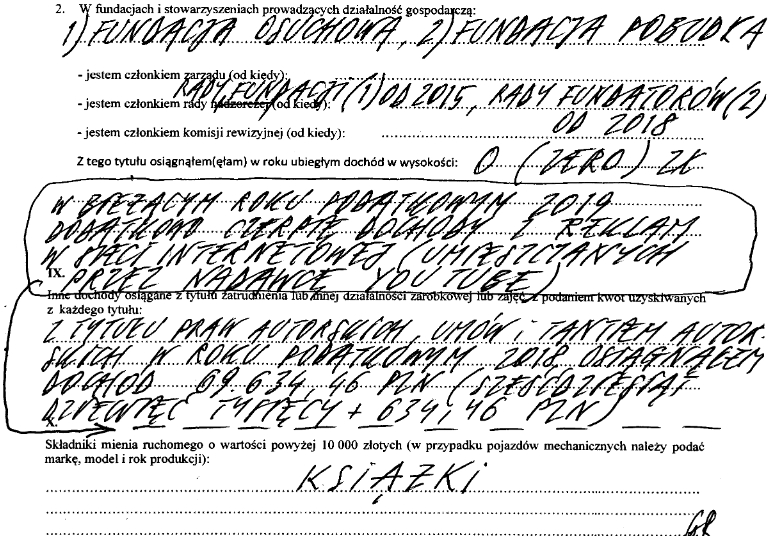 2. W fundacjach i stowarzyszeniach prowadzących działalność gospodarczą:
1) FUNDACJA OSUCHOWA, 2) FUNDACJA POBUDKA
- jestem członkiem zarządu (od kiedy):
RADY FUNDACJI (1) OD 2015, RADY FUNDATORÓW (2)
- jestem członkiem rady nadzorczej (od kiedy):
OD 2018
- jestem członkiem komisji rewizyjnej (od kiedy):
Z tego tytułu osiągnąłem(ęłam) w roku ubiegłym dochód w wysokości: 0 (ZERO) ZŁ
W BIEŻĄCYM ROKU PODATKOWYM 2019
DODATKOWO CZERPIĘ DOCHODY Z REKLAM
W SIECI INTERNETOWEJ (UMIESZCZANYCH
IX. PRZEZ NADAWCĘ YOUTUBE)
Inne dochody osiągane z tytułu zatrudnienia lub innej działalności zarobkowej lub zajęć, z podaniem kwot uzyskiwanych
z każdego tytułu:
Z TYTUŁU PRAW AUTORSKICH, UMÓW i TANTIEM AUTOR-
SKICH W ROKU PODATKOWYM 2018 OSIĄGNĄŁEM
DOCHÓD 69 634,46 PLN (SZEŚĆDZIESIĄT
X. DZIEWIĘĆ TYSIĘCY + 634,46 PLN)
Składniki mienia ruchomego o wartości powyżej 10 000 złotych (w przypadku pojazdów mechanicznych należy podać
markę, model i rok produkcji):
KSIĄŻKI